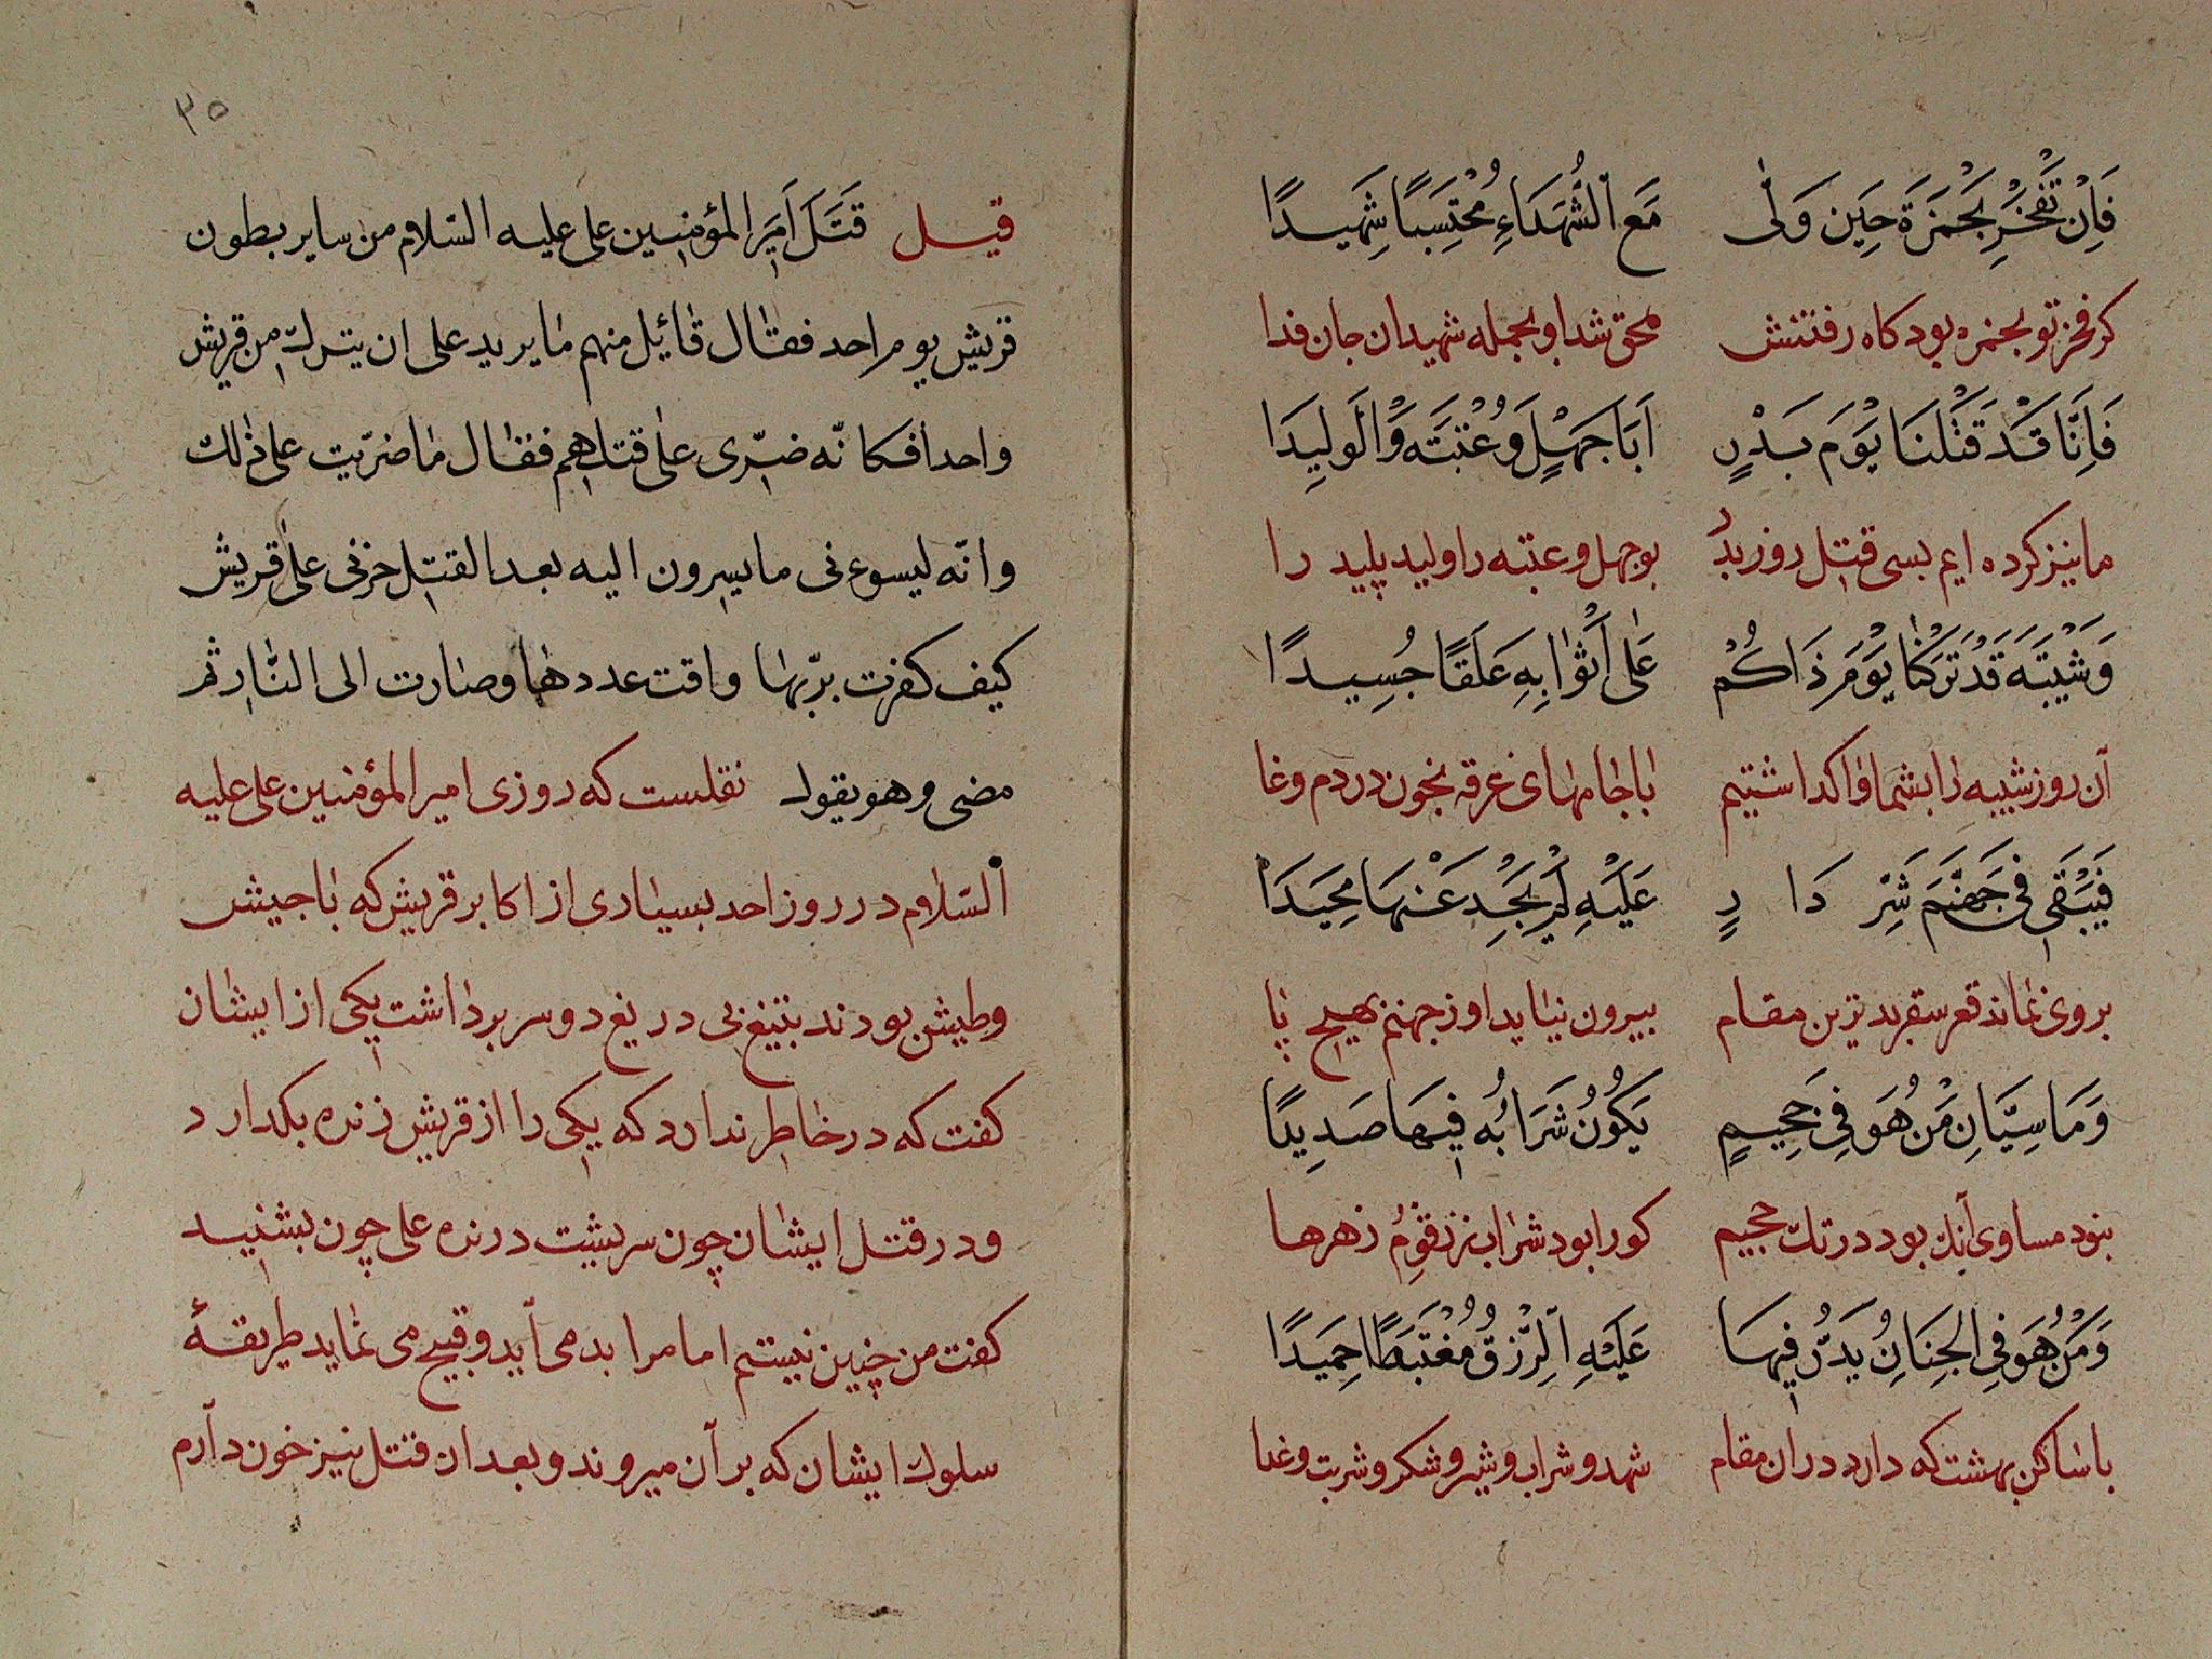 فَاِنْ تَفْخَرْ بِحَمْزَةَ حِينَ وَلّٰى مَعَ الشُّهَدَاءِ مُحْتَسِبًا شَهِيدًا
كر فخر تو بحمزه بود كاه رفتنش محق شد او بجمله شهيدان جان فدا
فَاِنَّا قَدْ قَتَلْنَا يَوْمَ بَدْرٍ اَبَا جَهْلٍ وَعُتْبَتَه وَالْوَلِيدَا
ما نيز كرده ايم بسى قتل روز بدر بوجهل و عتبه را وليد پليد را
وَشَيْبَتَه قَدْ تَرَكْنَا يَوْمَ ذَاكُمْ عَلٰى اَثْوَابِهِ عَلَقًا جُسِيدًا
آن روز شيبه را بشما واكداشتيم با جامهاى غرقه بخون در دم وغا
فَيَبْقٰى فى جَهَنَّمَ شَرَّ دَا رٍ عَلَيْهِ لَمْ يَجِدْ عَنْهَا مَحِيدَا
بروى نماند قعر سقر بدترين مقام بيرون نيايد او ز جهنم بهيچ پا
وَمَا سِيَّانِ مَنْ هُوَ فِى جَحِيمٍ يَكُونُ شَرَابُه فِيهَا صَدِيدًا
نبود مساوى آنك بود در تك جحيم كورا بود شراب ز زقوم زهرها
وَمَنْ هُوَ فِى الْجِنَانِ يَدَرُّ فِيهَا عَلَيْهِ الرِّزْقُ مُغْتَبَطًا حَمِيدًا
با ساكن بهشت كه دارد دران مقام شهد و شراب و شير و شكر و شربت وغدا
٣٥
قيل قَتَلَ اَمِيرَ المؤمنين على عليه السّلام من ساير بطون
قريش يوم احد فقال قائيل منهم ما يريد على ان يترك من قريش
واحدا فكانّه ضرّى على قتلهم فقال ما ضرّيت على ذلك
وانّه ليسوءنى ما يسيرون اليه بعد القتل حزنى على قريش
كيف كفرت بربّها واقت عددها وصارت الى النّار ثم
مضى وهو يقول نقلست كه روزى امير المؤمنين على عليه
السّلام در روز احد بسيارى از اكابر قريش كه با جيش
وطيش بودند بتيغ بى دريغ دو سر برداشت يكى از ايشان
كفت كه در خاطر ندارد كه يكى را از قريش زنده بكدارد
ودر قتل ايشان چون سربشت درنده على چون بشنيد
كفت من چنين نيستم اما مرا بد مى آيد و قبيح مى نمايد طريقۀ
سلوك ايشان كه بر آن ميروند و بعد ان قتل نيز خون دآرم